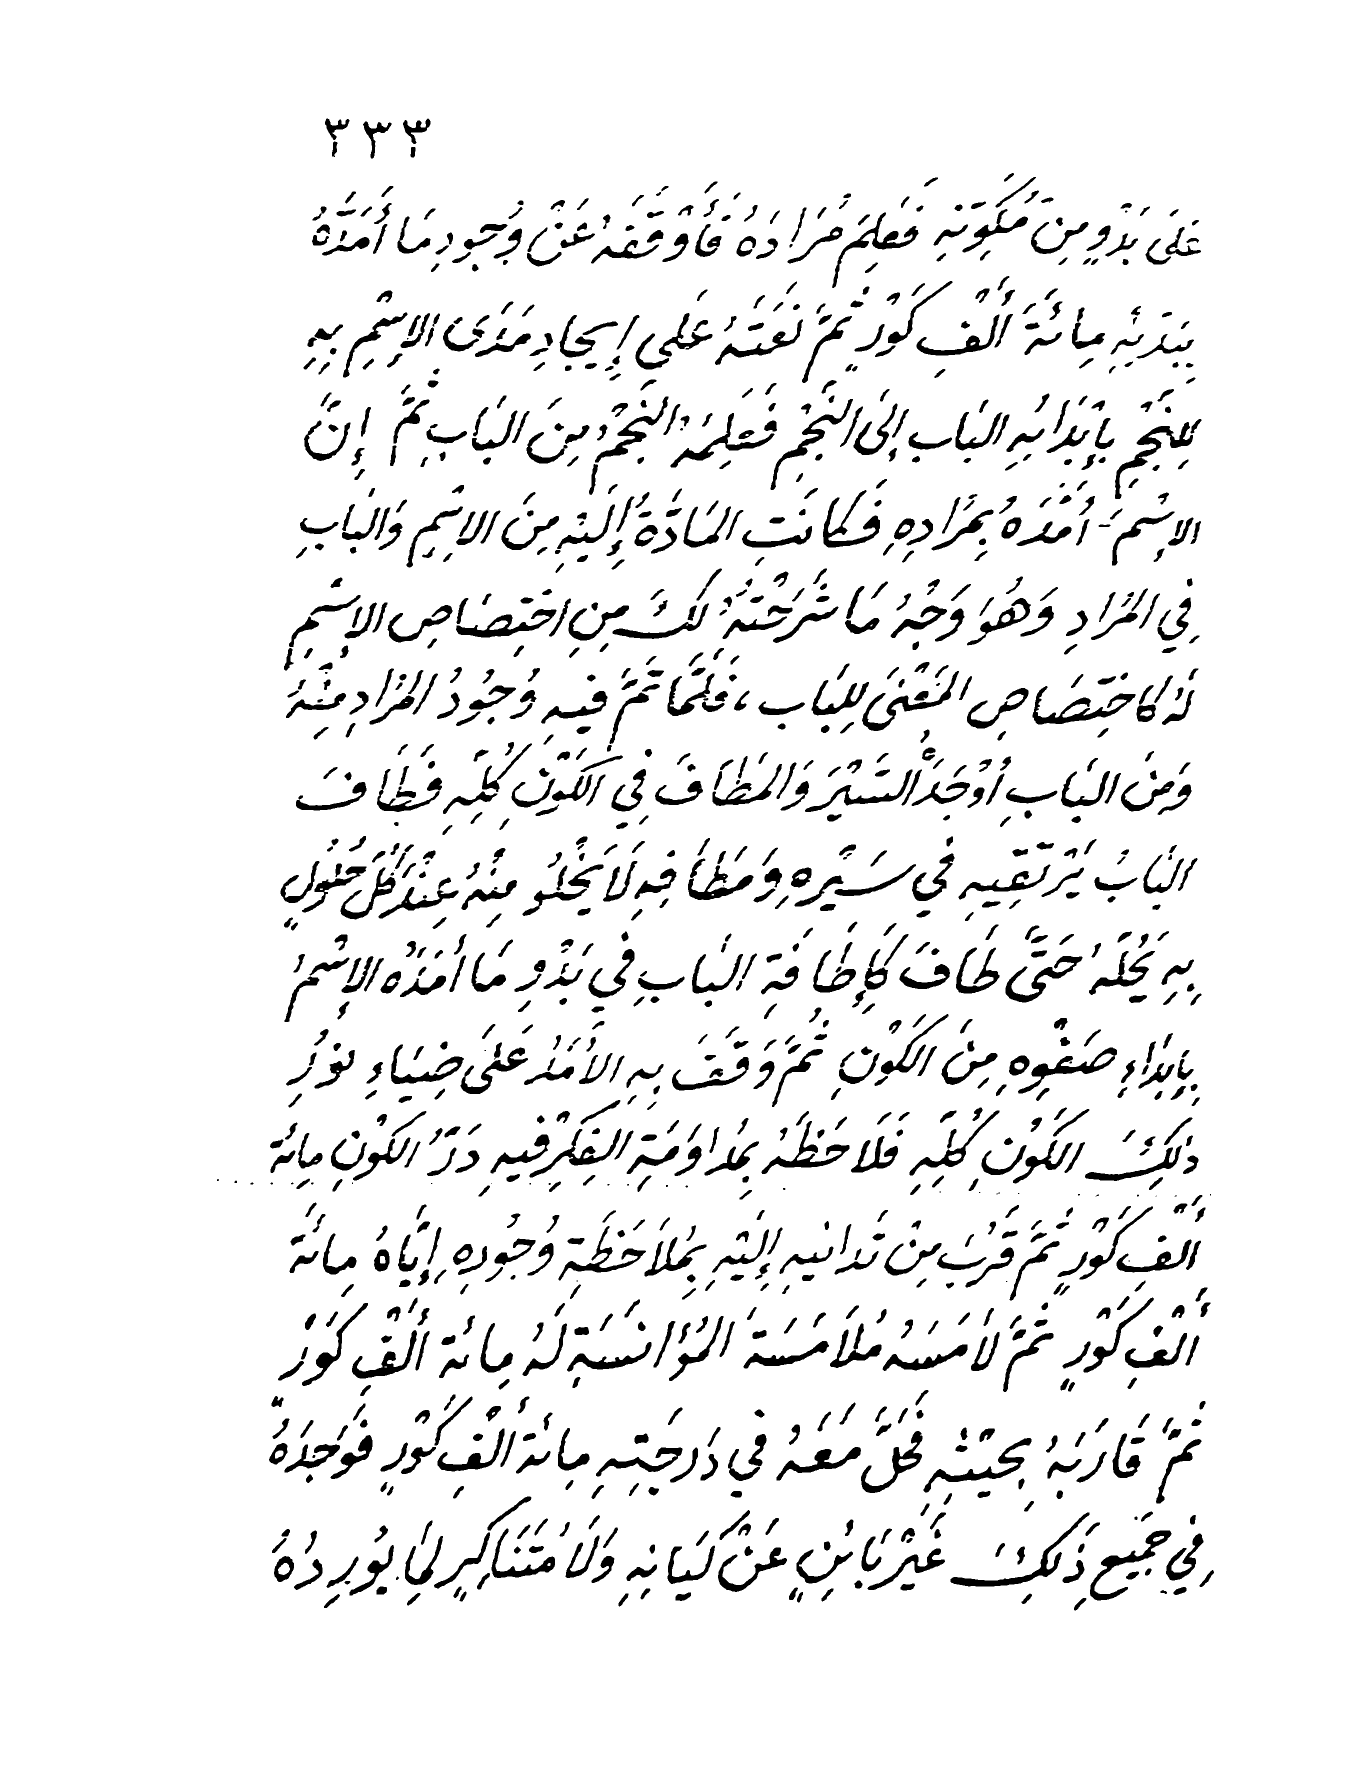 ٣٣٣
عَلَى بَدْوٍ مِنَ مُكَوِّنِهِ فَعَلِمَ مُرَادَهُ فَأَوْقَفَهُ عَنْ وُجُودِ مَا أَمَدَّهُ
بِبَدْئِهِ مِائَةَ أَلْفِ كَوْرٍ ثُمَّ نَعَتَهُ عَلَى إِيجَادِ مَدَى الإِسْمِ بِهِ
لِلنَّجْمِ بِإِبْدَائِهِ البَابِ إِلَى النَّجْمِ فَعَلِمَهُ النَّجْمُ مِنَ البَابِ ثُمَّ إِنَّ
الإِسْمَ أَمَدَّهُ بِمُرَادِهِ فَكَانَتِ المَادَّةُ إِلَيْهِ مِنَ الإِسْمِ وَالبَابِ
فِي المُرَادِ وَهُوَ وَجْهُ مَا شَرَحْتُهُ لَكَ مِنِ اخْتِصَاصِ الإِسْمِ
لَهُ كَاخْتِصَاصِ المَعْنَى لِلبَابِ، فَلَمَّا تَمَّ فِيهِ وُجُودُ المُرَادِ مِنْهُ
وَمِنَ البَابِ أَوْجَدَ السَّيْرَ وَالمَطَافَ فِي الكَوْنِ كُلِّهِ فَطَافَ
البَابُ يَرْتَقِيهِ فِي سَيْرِهِ وَمَطَافِهِ لَا يَخْلُو مِنْهُ عِنْدَ كُلِّ حُلُولٍ
بِهِ يَحُلُّهُ حَتَّى طَافَ كَإِطَافَةِ البَابِ فِي بَدْوِ مَا أَمَدَّهُ الإِسْمُ
بِإِبْدَاءِ صَفْوِهِ مِنَ الكَوْنِ ثُمَّ وَقَفَ بِهِ الأَمَدُ عَلَى ضِيَاءِ نُورِ
ذَلِكَ الكَوْنِ كُلِّهِ فَلَاحَظَهُ بِمُدَاوَمَةِ الفِكْرِ فِيهِ دَرُّ الكَوْنِ مِائَةَ
أَلْفِ كَوْرٍ ثُمَّ قَرُبَ مِنْ تَدَانِيهِ إِلَيْهِ بِمُلَاحَظَةِ وُجُودِهِ إِيَّاهُ مِائَةَ
أَلْفِ كَوْرٍ ثُمَّ لَامَسَهُ مُلَامَسَةَ المُؤَانَسَةِ لَهُ مِائَةَ أَلْفِ كَوْرٍ
ثُمَّ قَارَبَهُ بِحَيْثِهِ فَحَلَّ مَعَهُ فِي دَرَجَتِهِ مِائَةَ أَلْفِ كَوْرٍ فَوَجَدَهُ
فِي جَمِيعِ ذَلِكَ غَيْرَ بَائِنٍ عَنْ كَيَانِهِ وَلَا مُتَنَاكِرٍ لِمَا يُورِدُهُ